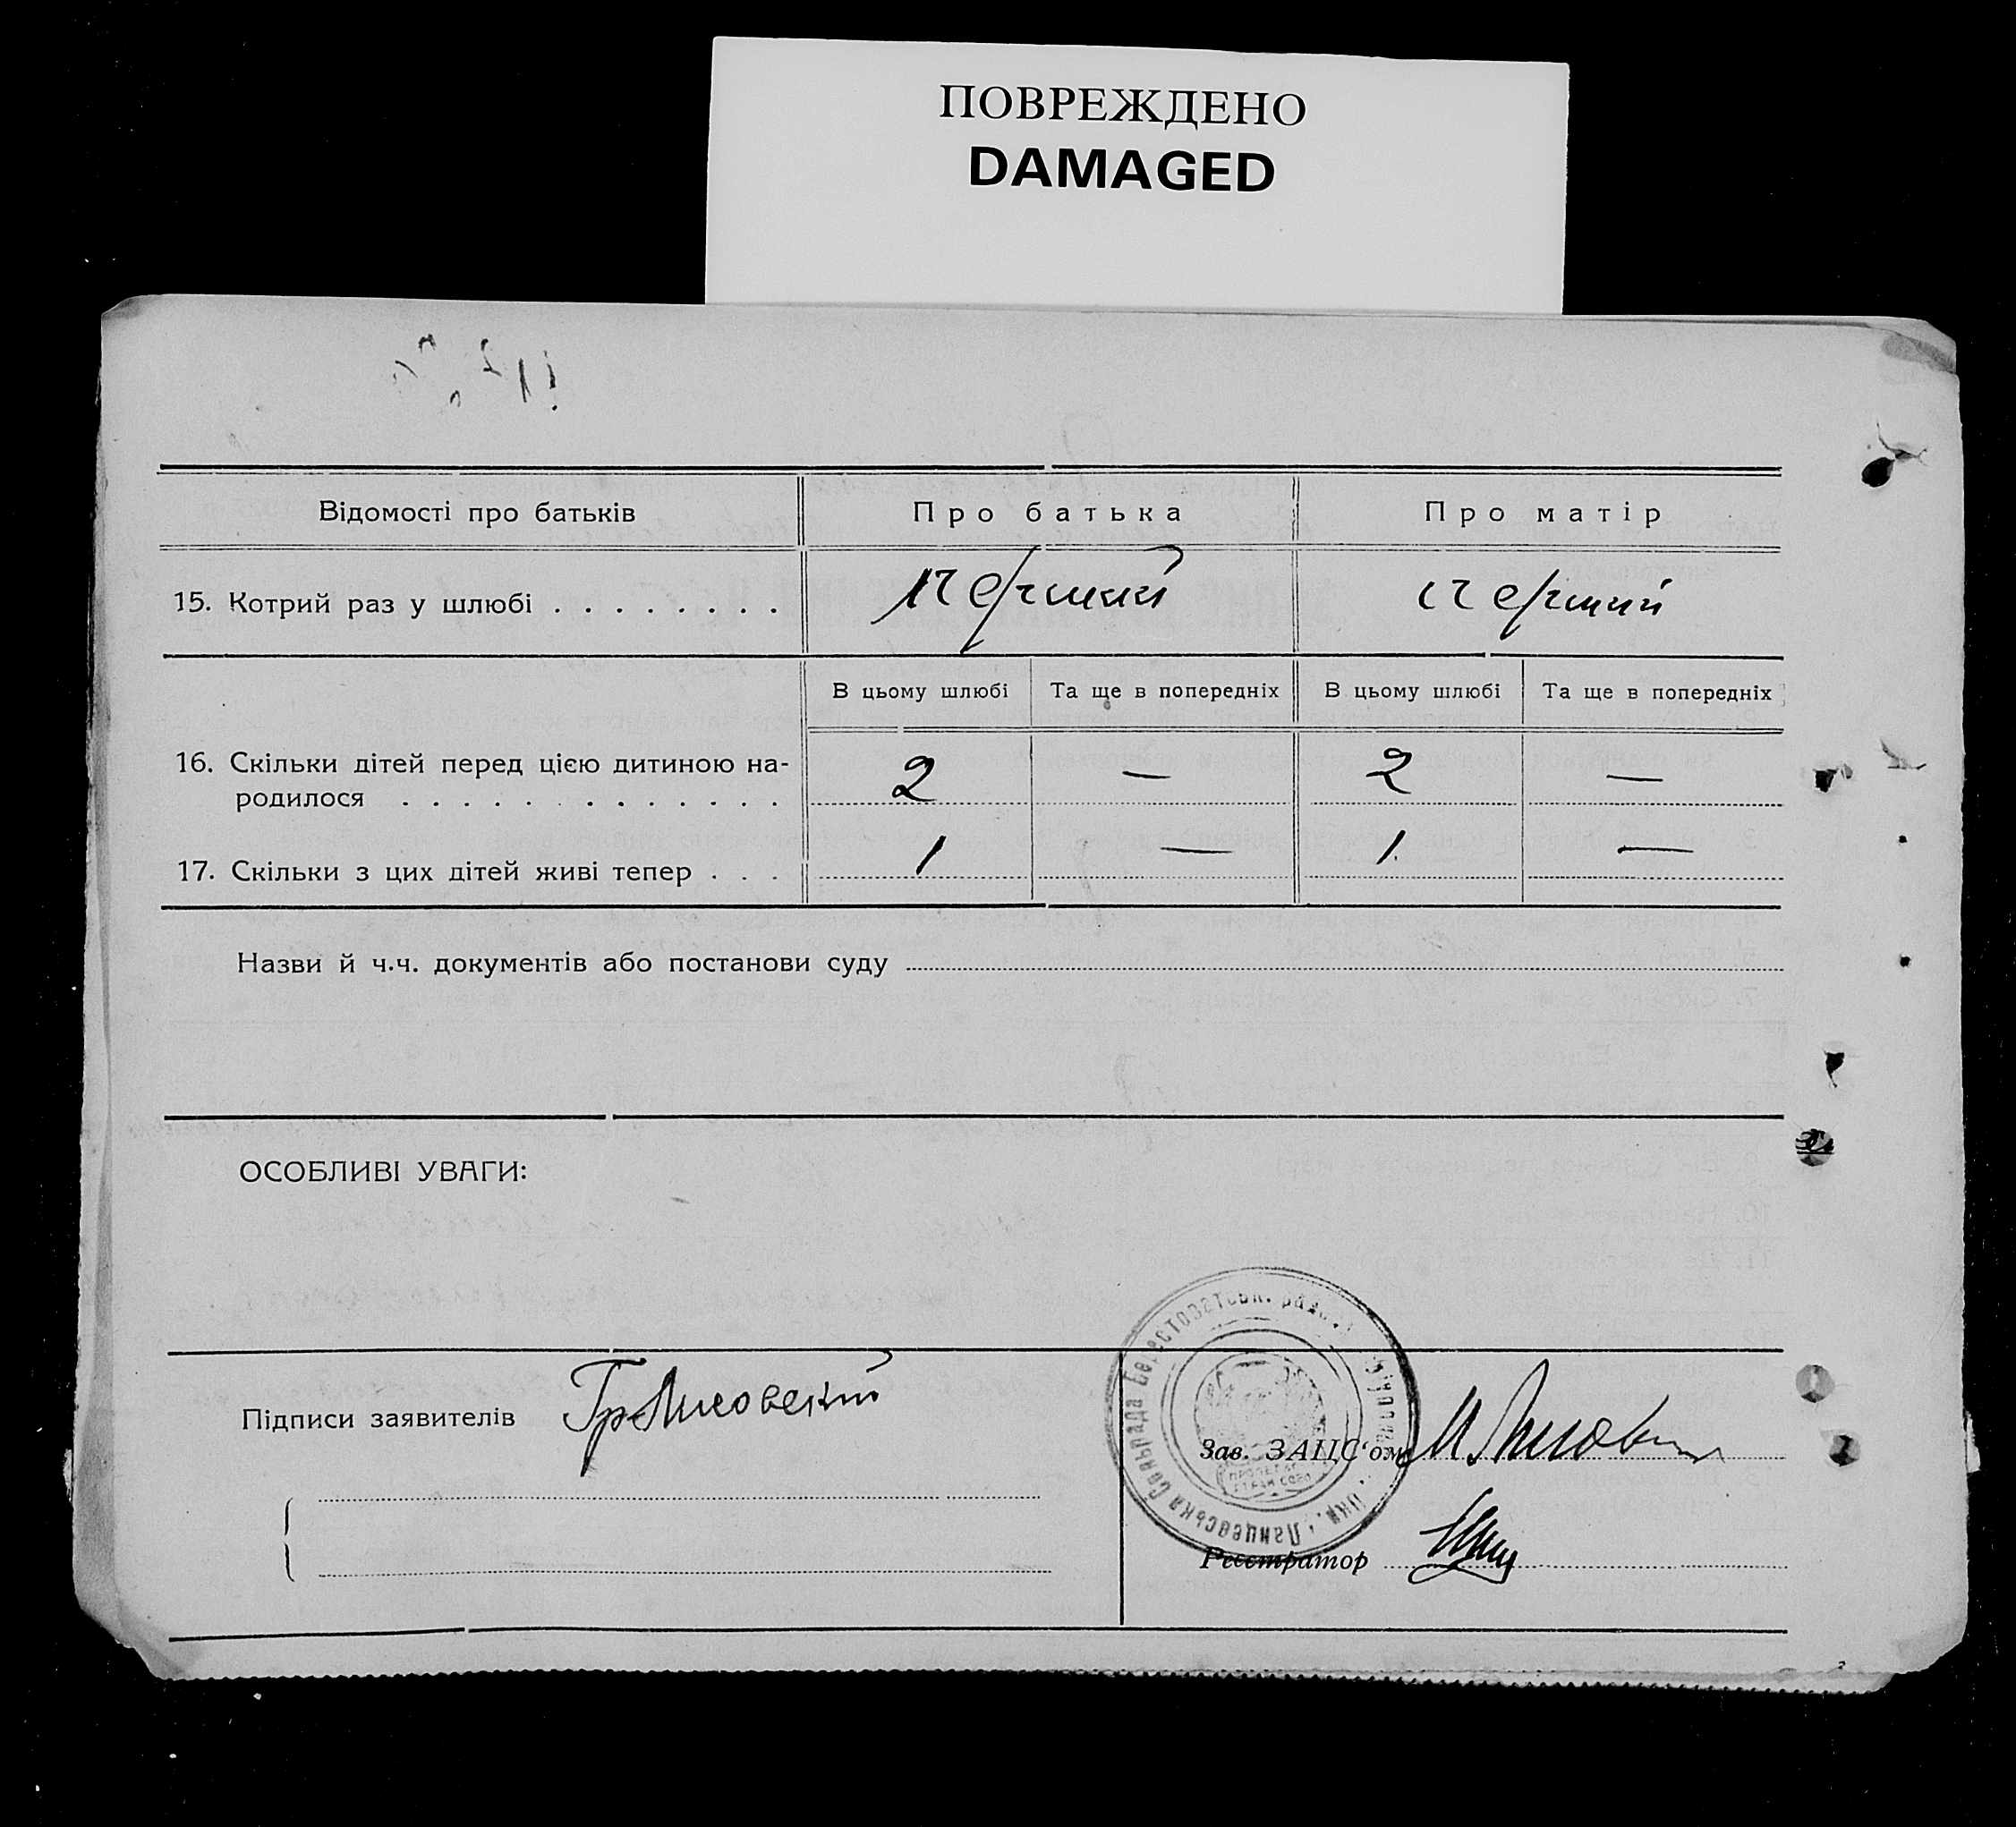 ПОВРЕЖДЕНО
DAMAGED
Відомості про батьків
Про батька
Про матір
15. Котрий раз у шлюбі . . . . . . . .
перший
перший
В цьому шлюбі
Та ще в попередніх
В цьому шлюбі
Та ще в попередніх
16. Скільки дітей перед цією дитиною на-
родилося . . . . . . . . . . . . .
2
—
2
—
17. Скільки з цих дітей живі тепер . . .
1
—
1
—
Назви й ч.ч. документів або постанови суду
ОСОБЛИВІ УВАГИ:
Підписи заявителів
Гр Лисовский
Сельрада Берестоватськ.
Окр.
Зав. ЗАЦС'ом
Реєстратор